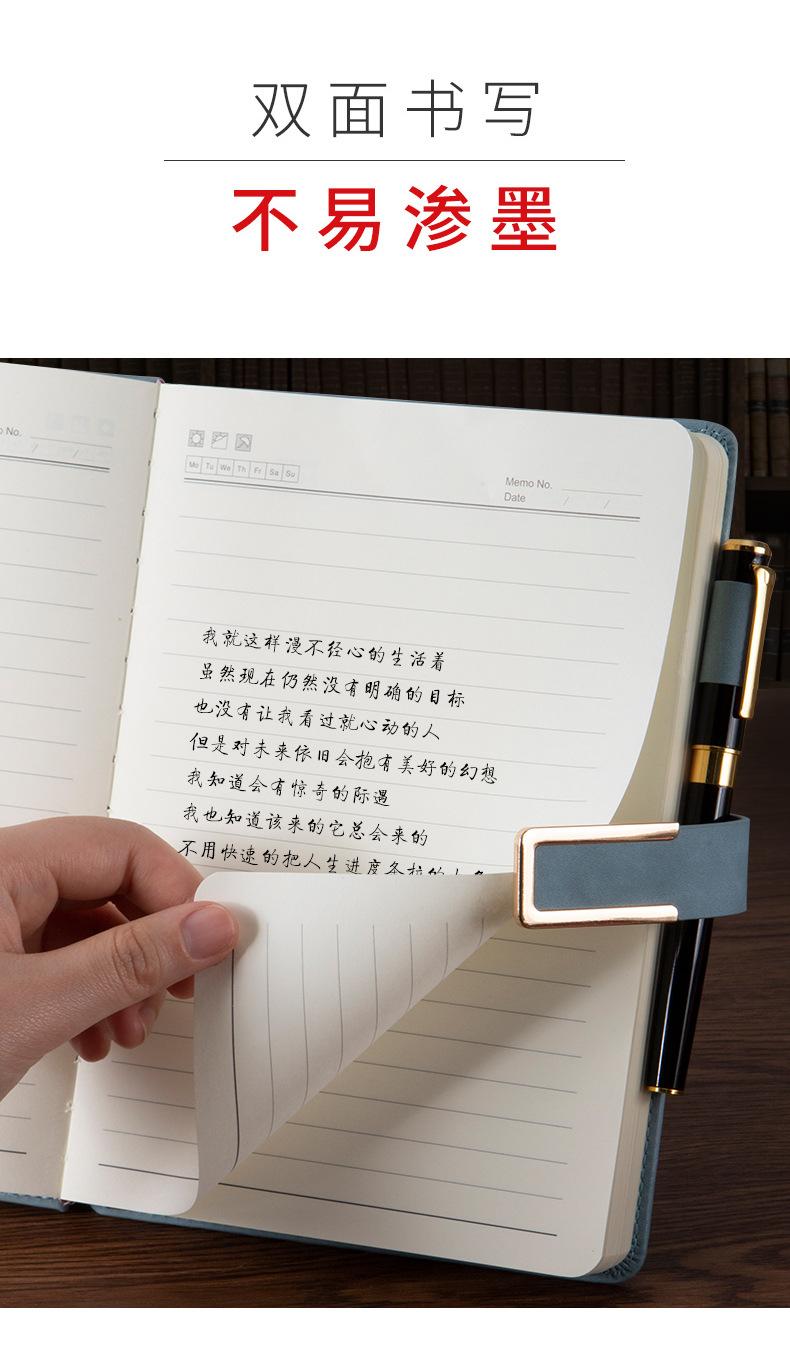 双面书写
不易渗墨
o No.
/ /
Mo Tu We Th Fr Sa Su
Memo No.
Date / /
我就这样漫不经心的生活着
虽然现在仍然没有明确的目标
也没有让我看过就心动的人
但是对未来依旧会抱有美好的幻想
我知道会有惊奇的际遇
我也知道该来的它总会来的
不用快速的把人生进度条拉的